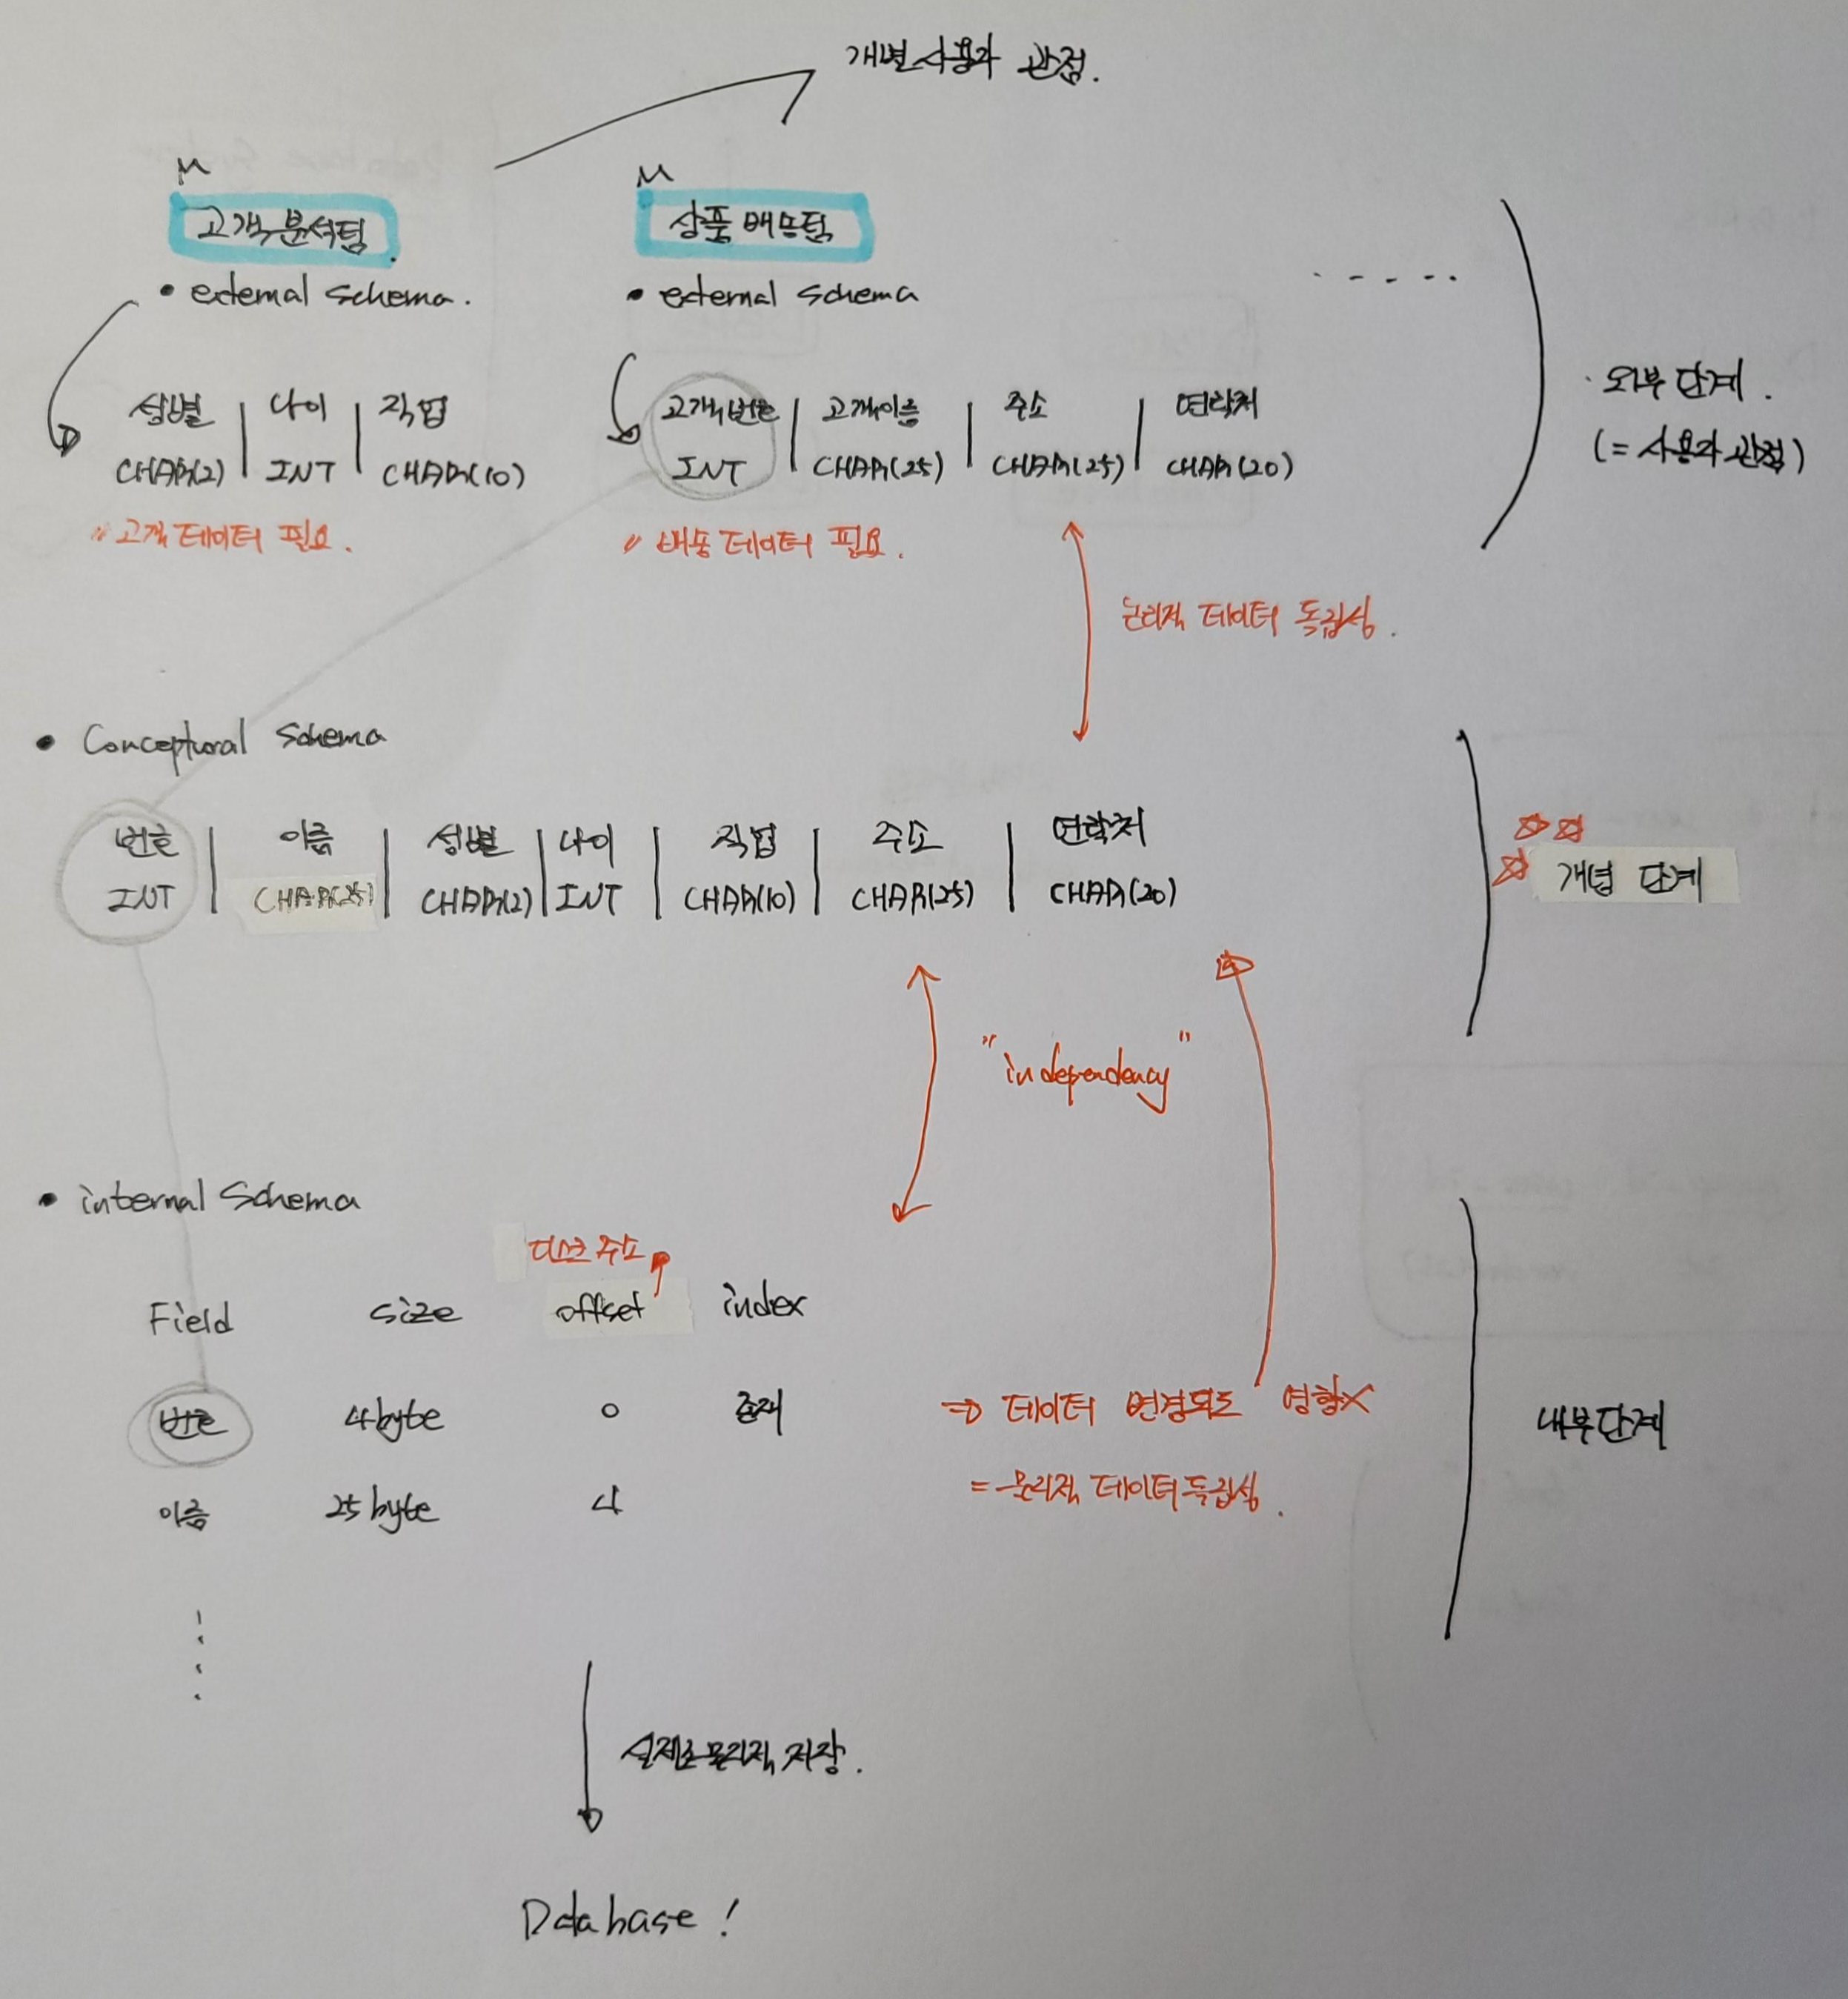 개별사용자 관점.
고객분석팀.
상품배송팀
• external schema.
• external schema
.....
성별 | 나이 | 직업
CHAR(2) | INT | CHAR(10)
고객번호 | 고객이름 | 주소 | 연락처
INT | CHAR(25) | CHAR(25) | CHAR(20)
외부 단계.
(= 사용자 관점)
" 고객 데이터 필요.
" 배송 데이터 필요.
논리적 데이터 독립성.
• Conceptural Schema
번호 | 이름 | 성별 | 나이 | 직업 | 주소 | 연락처
INT | CHAR(25) | CHAR(2) | INT | CHAR(10) | CHAR(25) | CHAR(20)
개념 단계
"independency"
• internal Schema
디스크 주소
Field size offset index
번호 4byte 0 존재
⇒ 데이터 변경되도 영향X
내부단계
이름 25byte 4
= 물리적 데이터 독립성.
실제로 물리적 저장.
Database !